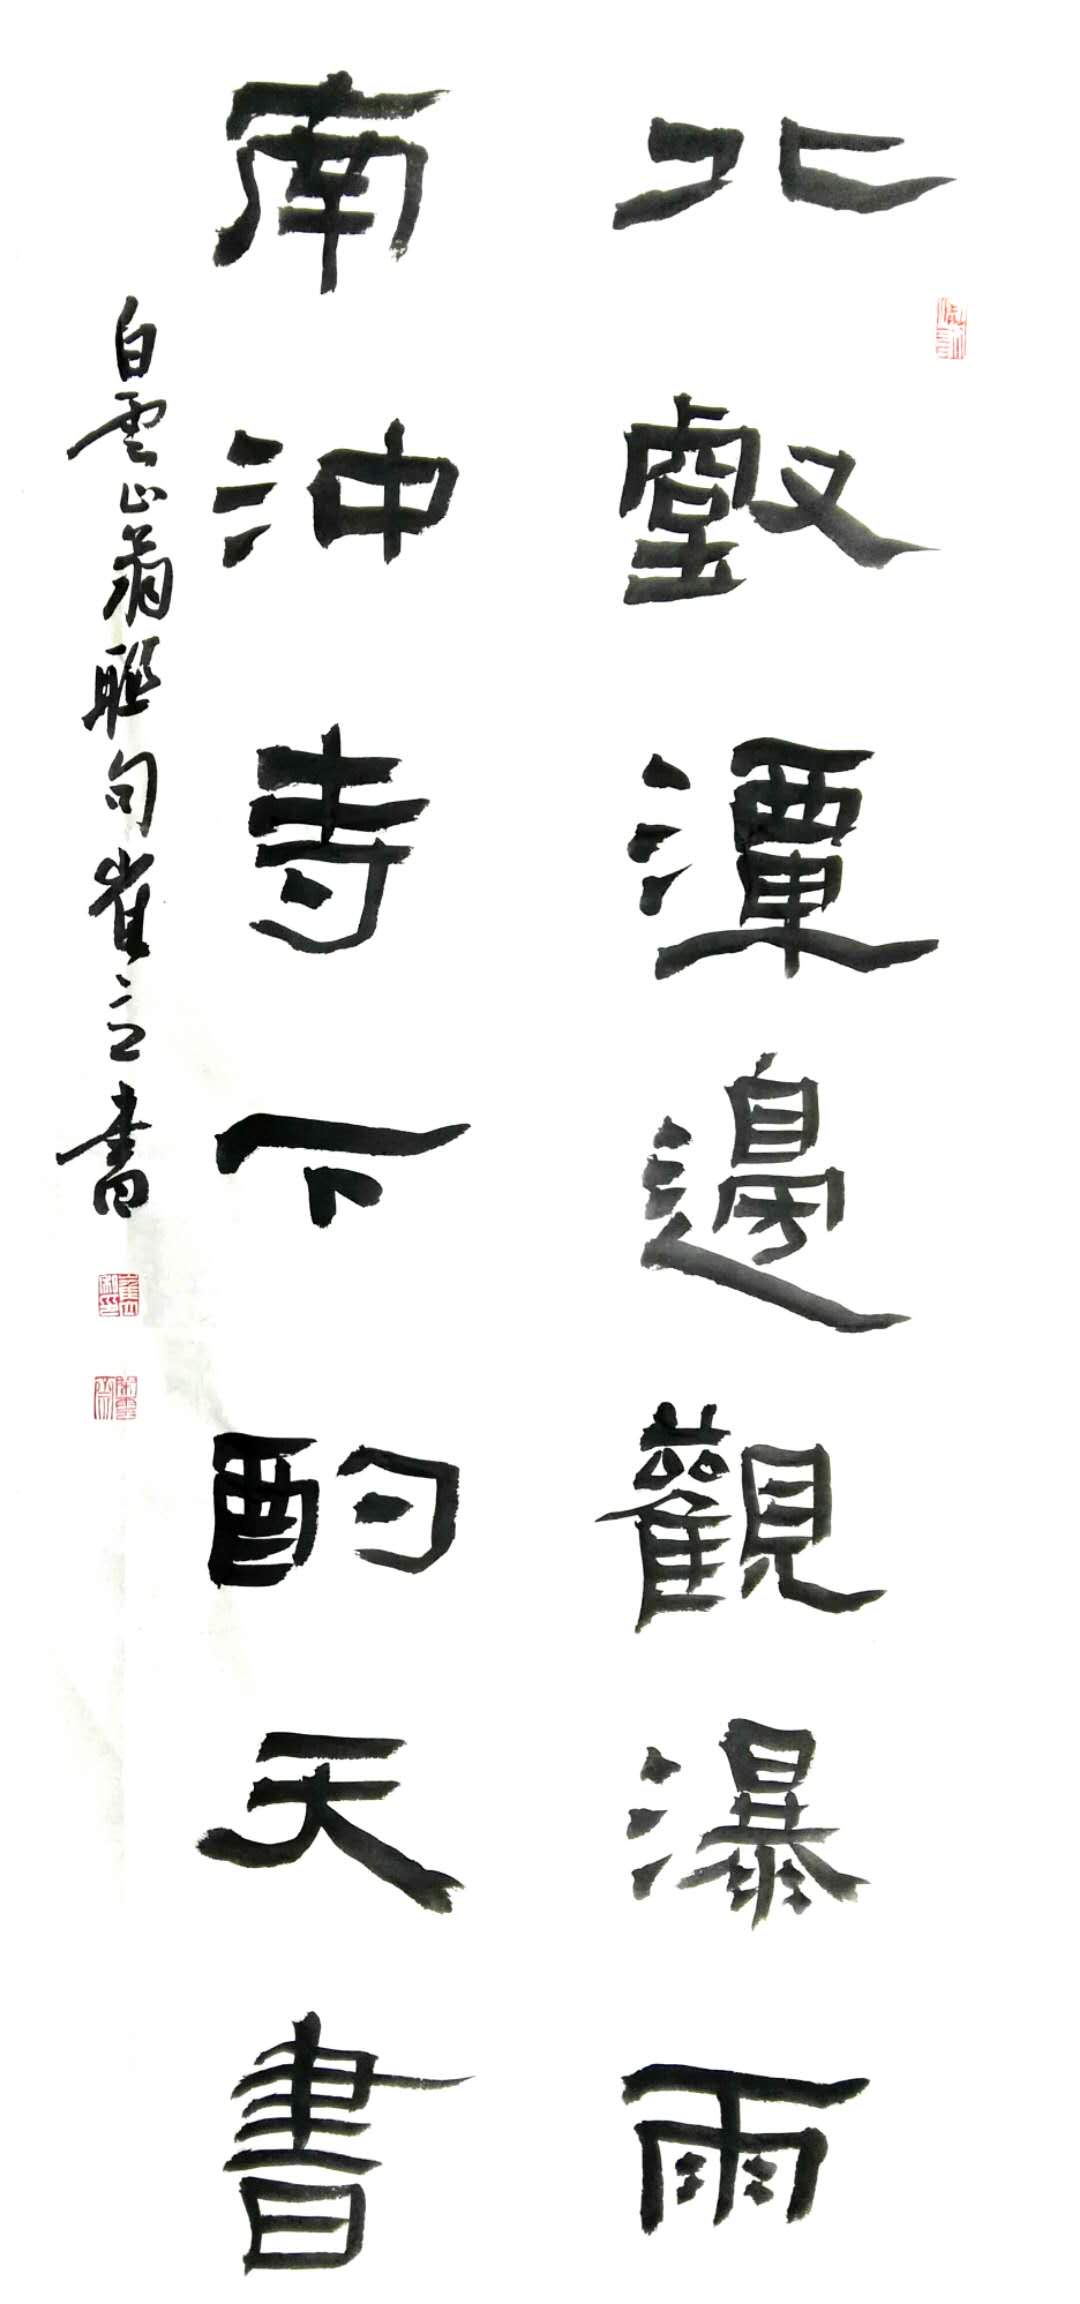 北壑潭邊觀瀑雨
南沖寺下酌天書
白雲山翁聯句崔立書